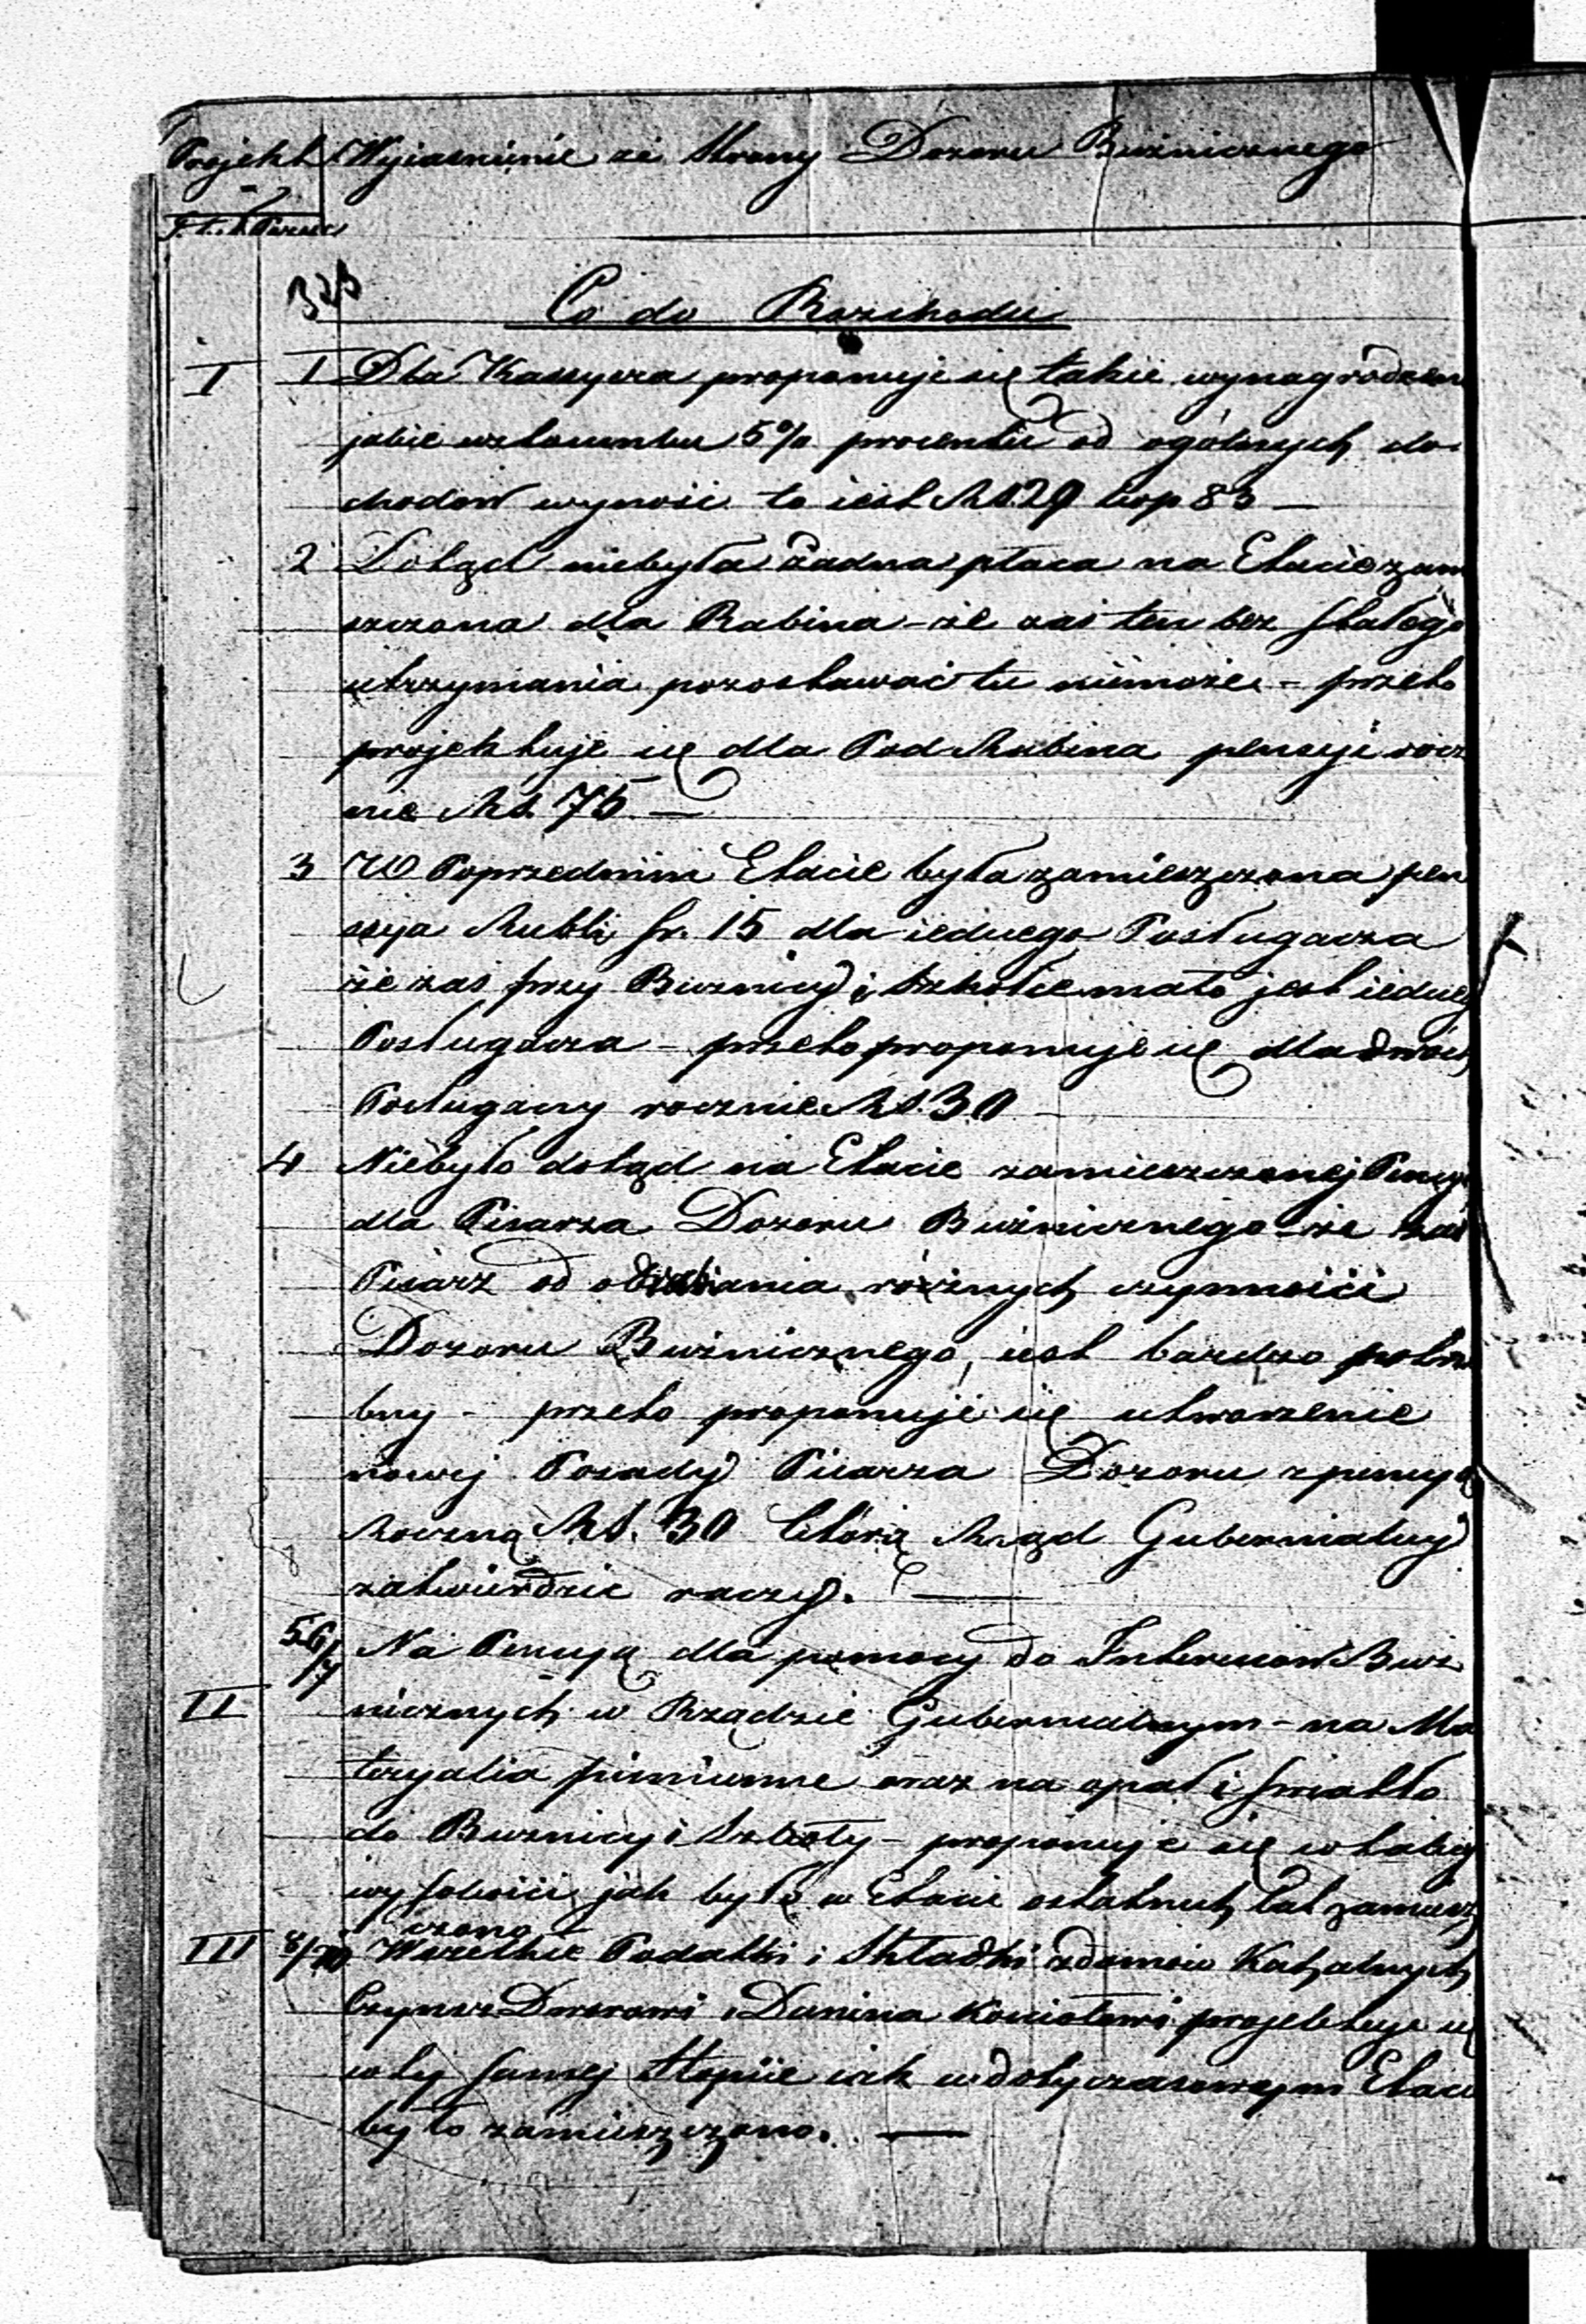 Projekt Wyiasnienie ze Strony Dozoru Bużnicznego
Co do Rozchodu
I 1 Dla Kassyera proponuje się takie wynagrodzen
jakie w stosunku 5% procentu od ogólnych do-
chodow wynosi to iest Rs. 29 kop 83 —
2 Dotąd niebyła żadna płaca na Etacie zam
szczona dla Rabina - że zas ten bez stałego
utrzymania pozostawać tu niemoże - przeto
projektuje się dla Pod-Rabina pensyi rocz
nie Rs. 75 —
3 W Poprzednim Etacie była zamieszczona pen
sya Rubli sr. 15 dla iednego Posługacza
że zas przy Bużnicy i Szkole mało jest iedneg
Posługacza - przeto proponuje się dla dwoch
Posługaczy rocznie Rs. 30 —
4 Niebyło dotąd na Etacie zamieszczonej Pensyi
dla Pisarza Dozoru Bużnicznego - że zas
Pisarz od odrabiania różnych czynności
Dozoru Bużnicznego iest bardzo potrze
bny - przeto proponuje się utworzenie
nowej Posady Pisarza Dozoru z pensyą
Roczną Rs. 30 którą Rząd Gubernialny
zatwierdzic raczy. —
5.6/7 Na Pensyą dla pomocy do Interesow Buz
II nicznych w Rządzie Gubernialnym - na Ma
teryalia pismienne oraz na opał i swiatło
do Buznicy i Szkoły - proponuje się w takiej
wysokości jak było w Etacie ostatnich lat zamiesz
czono
III 8/10 Wszelkie Podatki i Składki z domów Kahalnych
Czynsz Dworowi i Danina Kosciołowi projektuje się
w tej samej Stopie iak w dotychczasowym Etacie
było zamieszczono. —